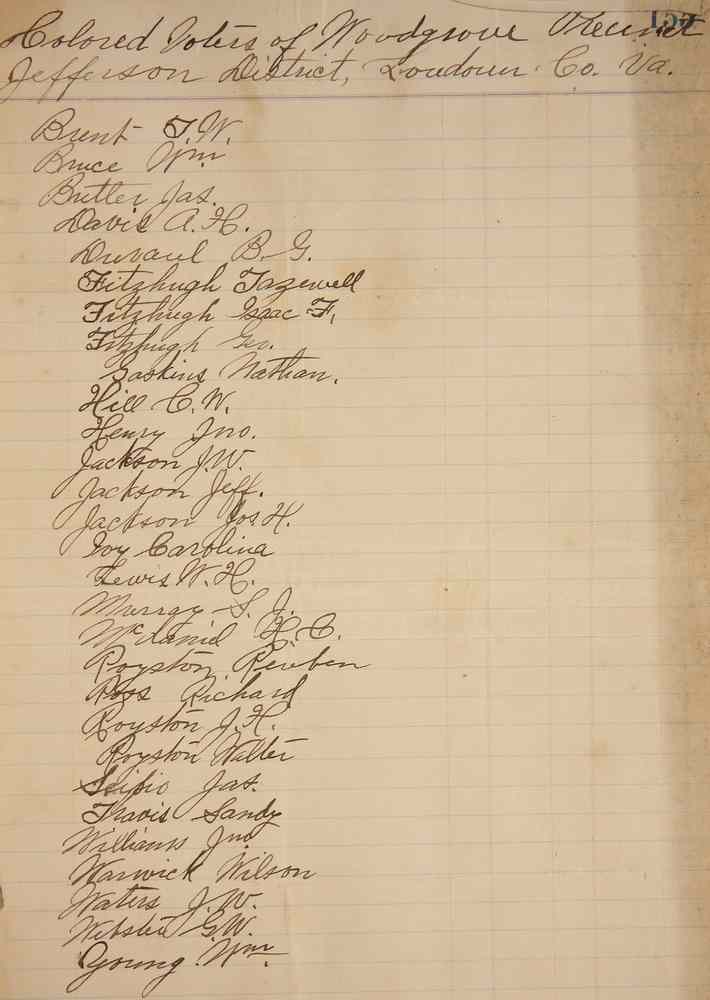 155
Colored Voters of Woodgrove Precinct
Jefferson District, Loudoun Co. Va.
Brent T.W.
Bruce Wm
Butler Jas.
Davis A.H.
Duvaul B.G.
Fitzhugh Tazewell
Fitzhugh Isaac F.
Fitzhugh Geo.
Gaskins Nathan.
Hill C.W.
Henry Jno.
Jackson J.W.
Jackson Jeff.
Jackson Jos H.
Joy Carolina
Lewis W.H.
Murray S.J.
McDaniel H.C.
Royston Reuben
Ross Richard
Royston J.H.
Royston Walter
Scipio Jas.
Travis Sandy
Williams Jno
Warwick Wilson
Waters J.W.
Webster G.W.
Young Wm.